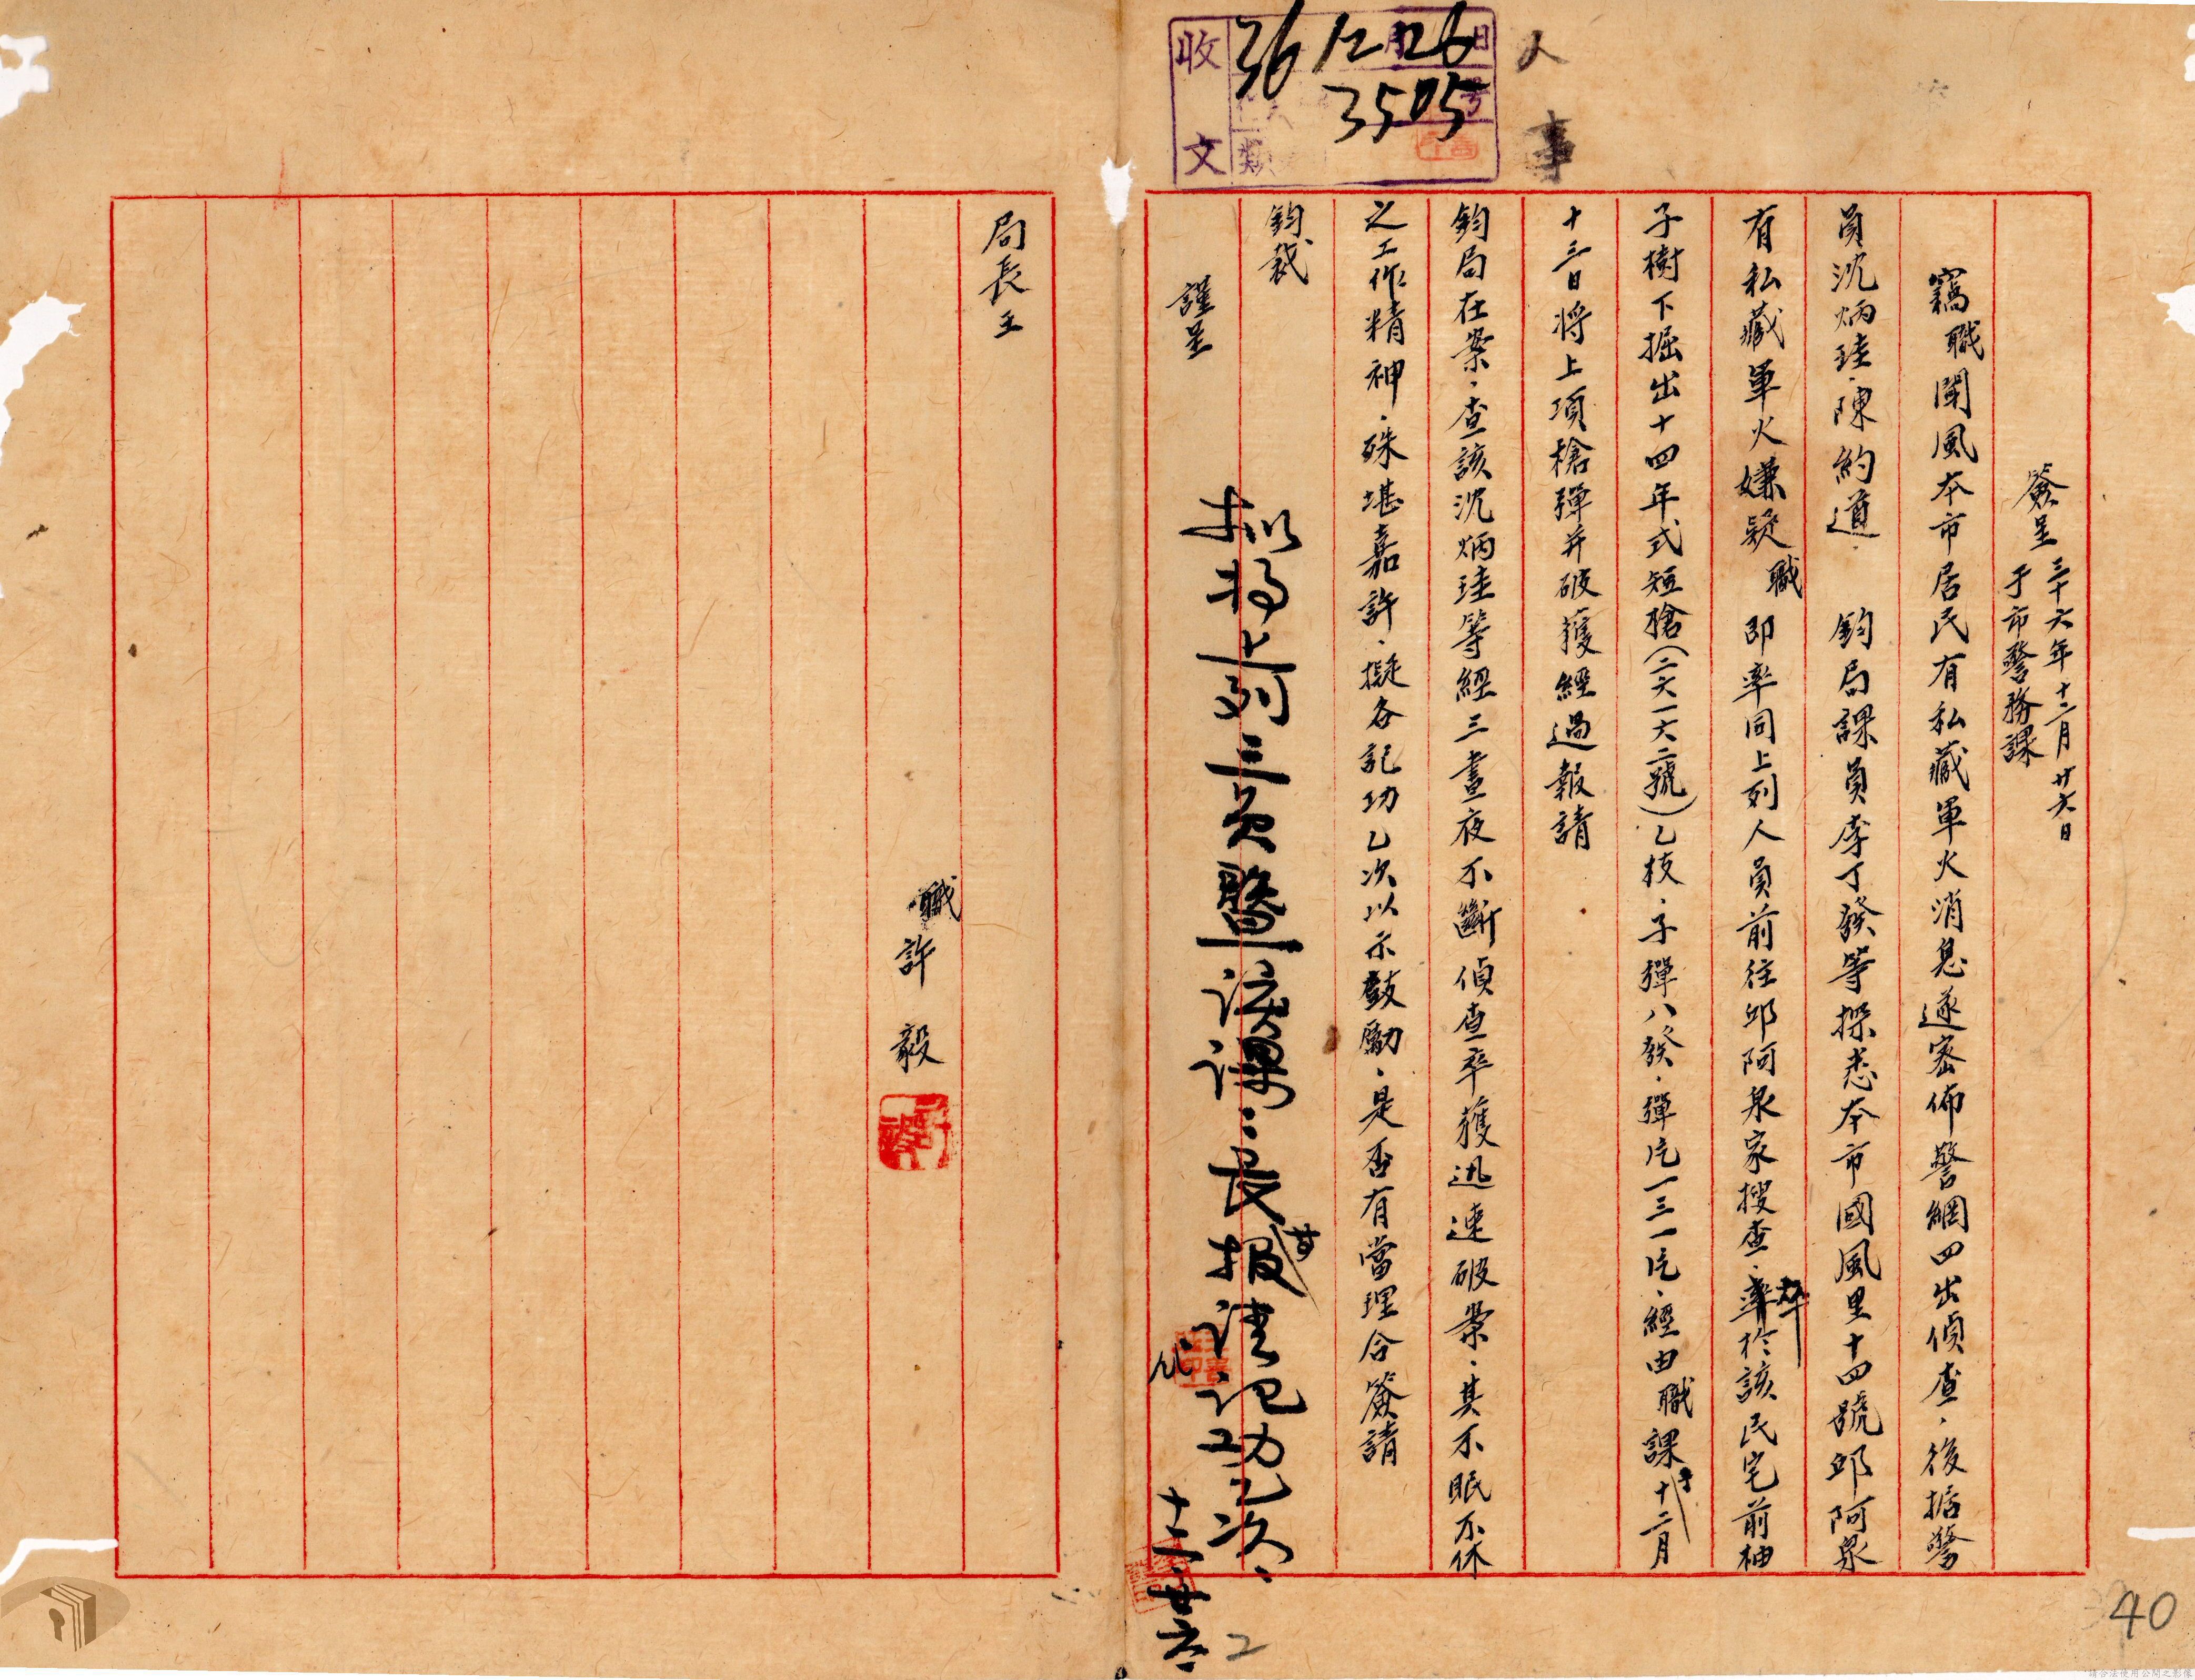 收文
36 12月26日
3505号
類
人事
簽呈 三十六年十二月廿六日
于市警務課
竊職聞風本市居民有私藏軍火消息遂密佈警網四出偵查、後据警
員沈炳珪、陳約道 鈞局課員李丁發等探悉本市國風里十四號邱阿泉
有私藏軍火嫌疑職即率同上列人員前往邱阿泉家搜查、卒於該民宅前柚
子樹下掘出十四年式短槍(二六一六二號)乙枝、子彈八發、彈片一三一片、經由職課于十二月
十三日將上項槍彈并破獲經過報請
鈞局在案、查該沈炳珪等經三晝夜不斷偵查卒獲迅速破案、其不眠不休
之工作精神、殊堪嘉許、擬各記功乙次以示鼓勵、是否有當理合簽請
鈞裁
謹呈
擬將上列三員暨該課課長報請記功乙次、
十二、廿六、
局長王
職許毅
40
2